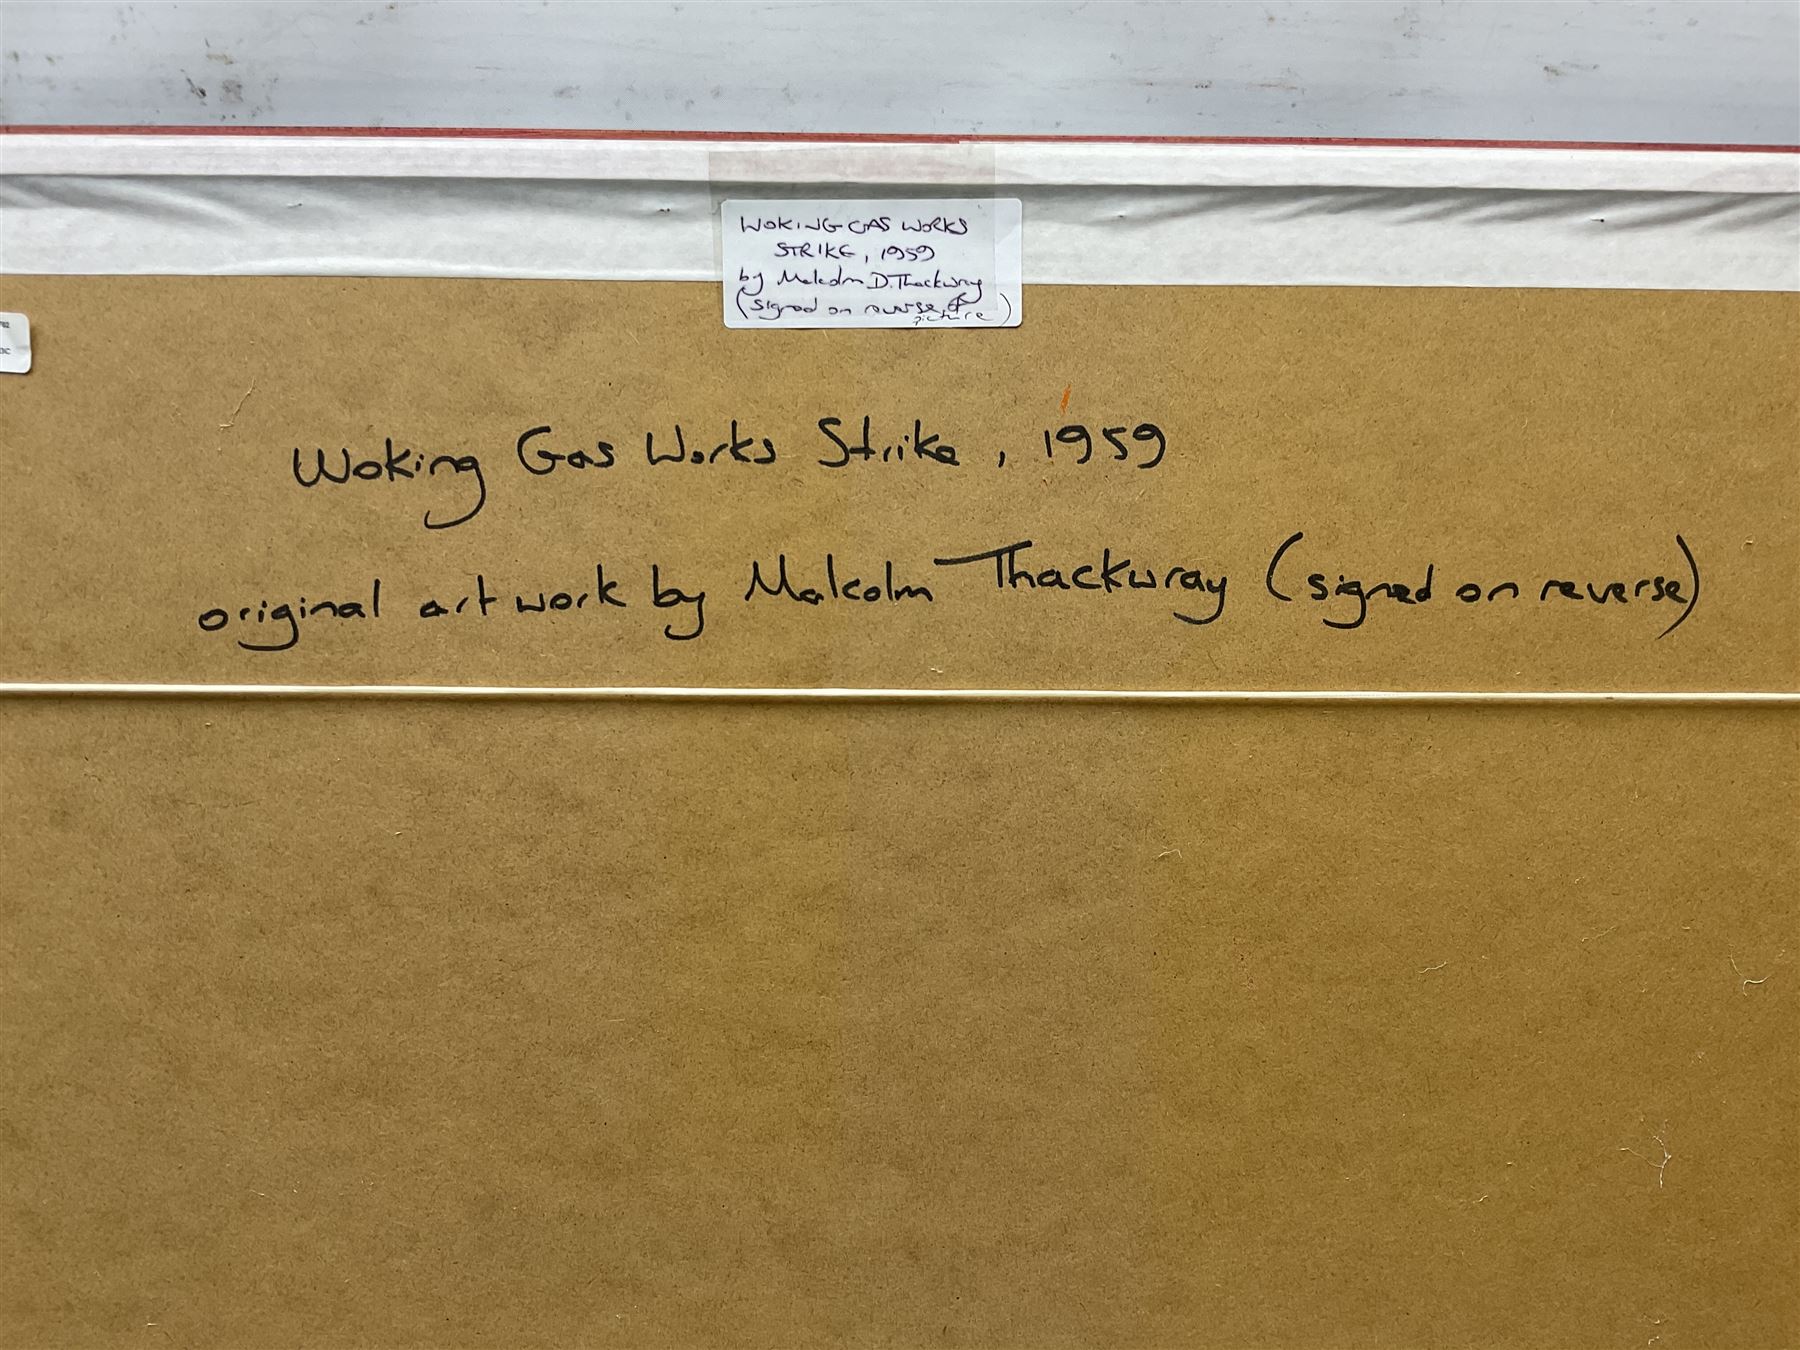 WOKING GAS WORKS
STRIKE, 1959
by Malcolm D. Thackwray
(signed on reverse of
picture)
Woking Gas Works Strike, 1959
original artwork by Malcolm Thackwray (signed on reverse)